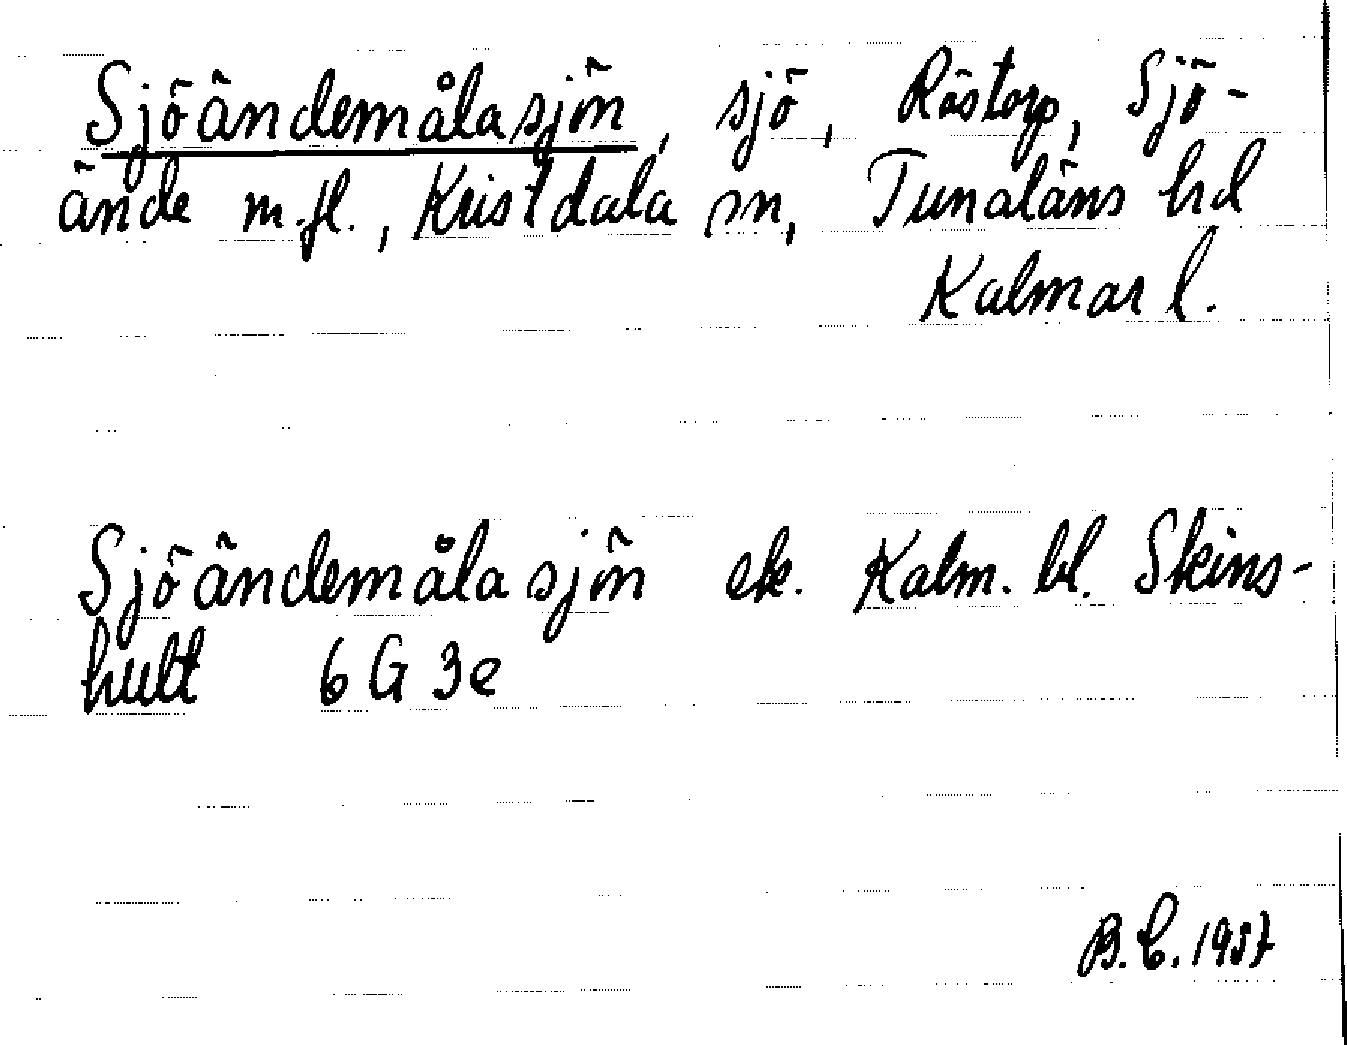 Sjöändemålasjön, sjö, Röstorp, Sjö-
ände m.fl., Kristdala sn, Tunaläns hd
Kalmar l.
Sjöändemålasjön ek. Kalm. bl. Skins-
hult 6 G 3e
B.C. 1957